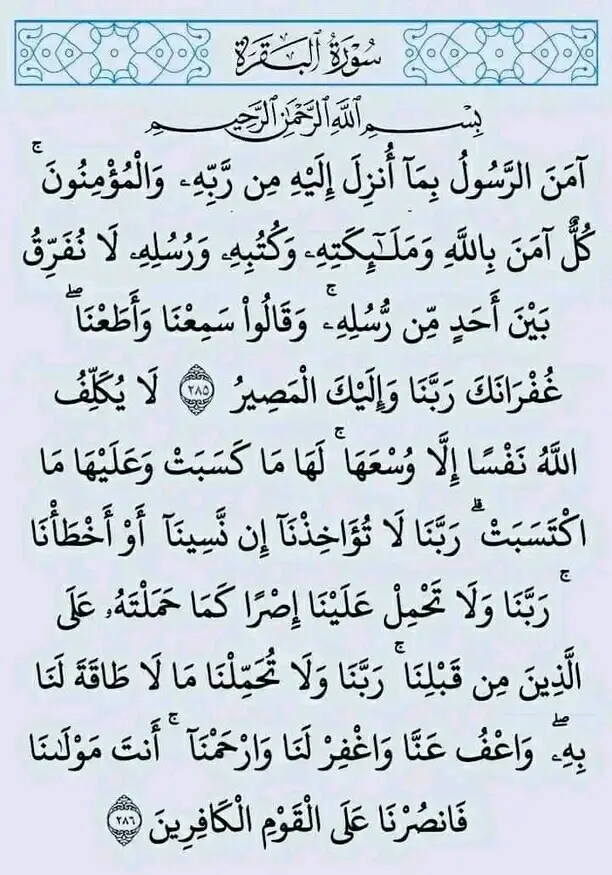 سُورَةُ الْبَقَرَةِ
بِسْمِ اللَّهِ الرَّحْمَٰنِ الرَّحِيمِ
آمَنَ الرَّسُولُ بِمَآ أُنزِلَ إِلَيْهِ مِن رَّبِّهِۦ وَالْمُؤْمِنُونَ ۚ
كُلٌّ آمَنَ بِاللَّهِ وَمَلَـٰٓئِكَتِهِۦ وَكُتُبِهِۦ وَرُسُلِهِۦ لَا نُفَرِّقُ
بَيْنَ أَحَدٍ مِّن رُّسُلِهِۦ ۚ وَقَالُوا۟ سَمِعْنَا وَأَطَعْنَا ۖ
غُفْرَانَكَ رَبَّنَا وَإِلَيْكَ الْمَصِيرُ ٢٨٥ لَا يُكَلِّفُ
اللَّهُ نَفْسًا إِلَّا وُسْعَهَا ۚ لَهَا مَا كَسَبَتْ وَعَلَيْهَا مَا
اكْتَسَبَتْ ۗ رَبَّنَا لَا تُؤَاخِذْنَآ إِن نَّسِينَآ أَوْ أَخْطَأْنَا
ۚ رَبَّنَا وَلَا تَحْمِلْ عَلَيْنَا إِصْرًا كَمَا حَمَلْتَهُۥ عَلَى
الَّذِينَ مِن قَبْلِنَا ۚ رَبَّنَا وَلَا تُحَمِّلْنَا مَا لَا طَاقَةَ لَنَا
بِهِۦ ۖ وَاعْفُ عَنَّا وَاغْفِرْ لَنَا وَارْحَمْنَآ ۚ أَنتَ مَوْلَىٰنَا
فَانصُرْنَا عَلَى الْقَوْمِ الْكَافِرِينَ ٢٨٦